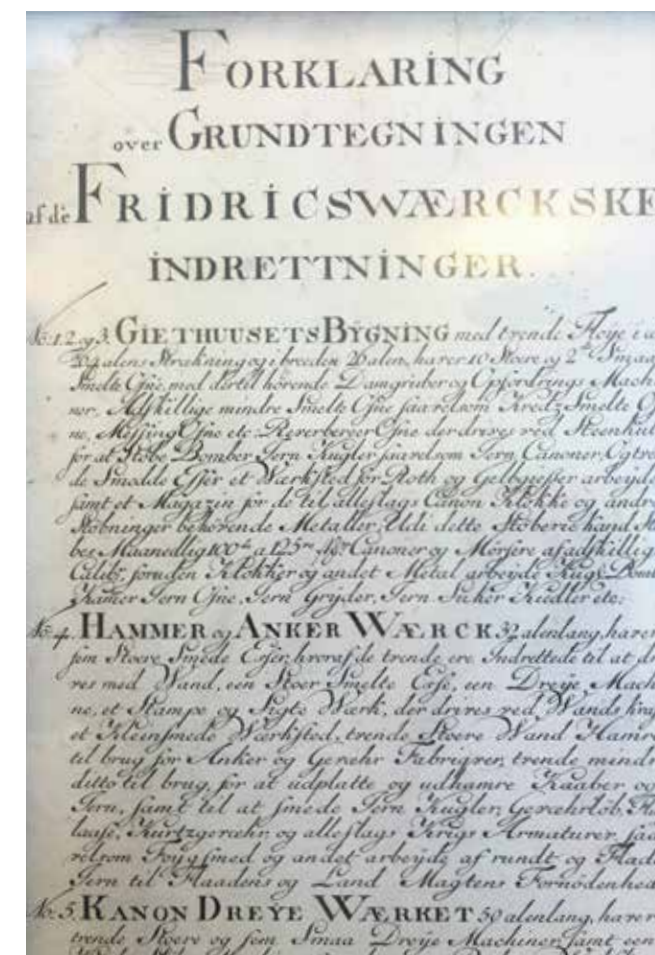 FORKLARING
over GRUNDTEGNINGEN
af de FRIDRICSWÆRCKSKE
INDRETTNINGER.
No: 1. 2 og 3. GIETHUUSETS BYGNING med trende Fløye i
alens Strækning og i breeden 26 alen, harer 10 Stoere og 2de Smaa
Smelte Ofne, med dertil hörende Damgruber og Opfordrings Machi
nor, Adskillige mindre Smelte Ofne saavelsom Kretz Smelte O
ne, Messing Ofne etc: Reverbereer Ofne der drives ved Steenkul
for at Stöbe Bomber, Jern Kugler saavelsom Jern Canoner, Og tren
de Smedde Esser et Værksted for Roth og Gelbgiesser arbeyde
samt et Magazin for de til alleslags Canon Klokke og andre
Stöbninger behörende Metaller, Udi dette Stöberie kand Stö
bes Maanedlig 100de a 125 Canoner og Mörsere af adskillig
Calibr, foruden Klokker og andet Metal arbeyde Kugl. Bomb
Kamer Jern Ofne, Jern Gryder, Jern Suker Kiedler etc:
No: 4. HAMMER og ANKER WÆRCK 32 alen lang, harer
fem Stoere Smede Esser, hvoraf de trende ere Indrettede til at dri
ves med Vand, een Stoer Smelte Esse, een Dreye Machi
ne, et Stampe og Sigte Værk, der drives ved Vands kraf
et Kleinsmede Værksted, trende Stoere Vand Hamre
til brug for Anker og Geværhr Fabriqver, trende mindre
ditto til brug, for at udplatte og udhamre Kaaber og
Jern, samt til at smede Jern Kugler, Geværhrlöb,
laase, Kurtzgeværhr, og alleslags Krigs Armaturer, saa
velsom Föygsmed og andet arbeyde af rundt og Flade
Jern til Flaadens og Land Magtens Fornödenhed
No: 5. KANON DREYE WÆRKET 50 alen lang, harer
trende Stoere og fem Smaa Dreye Machiner, samt een